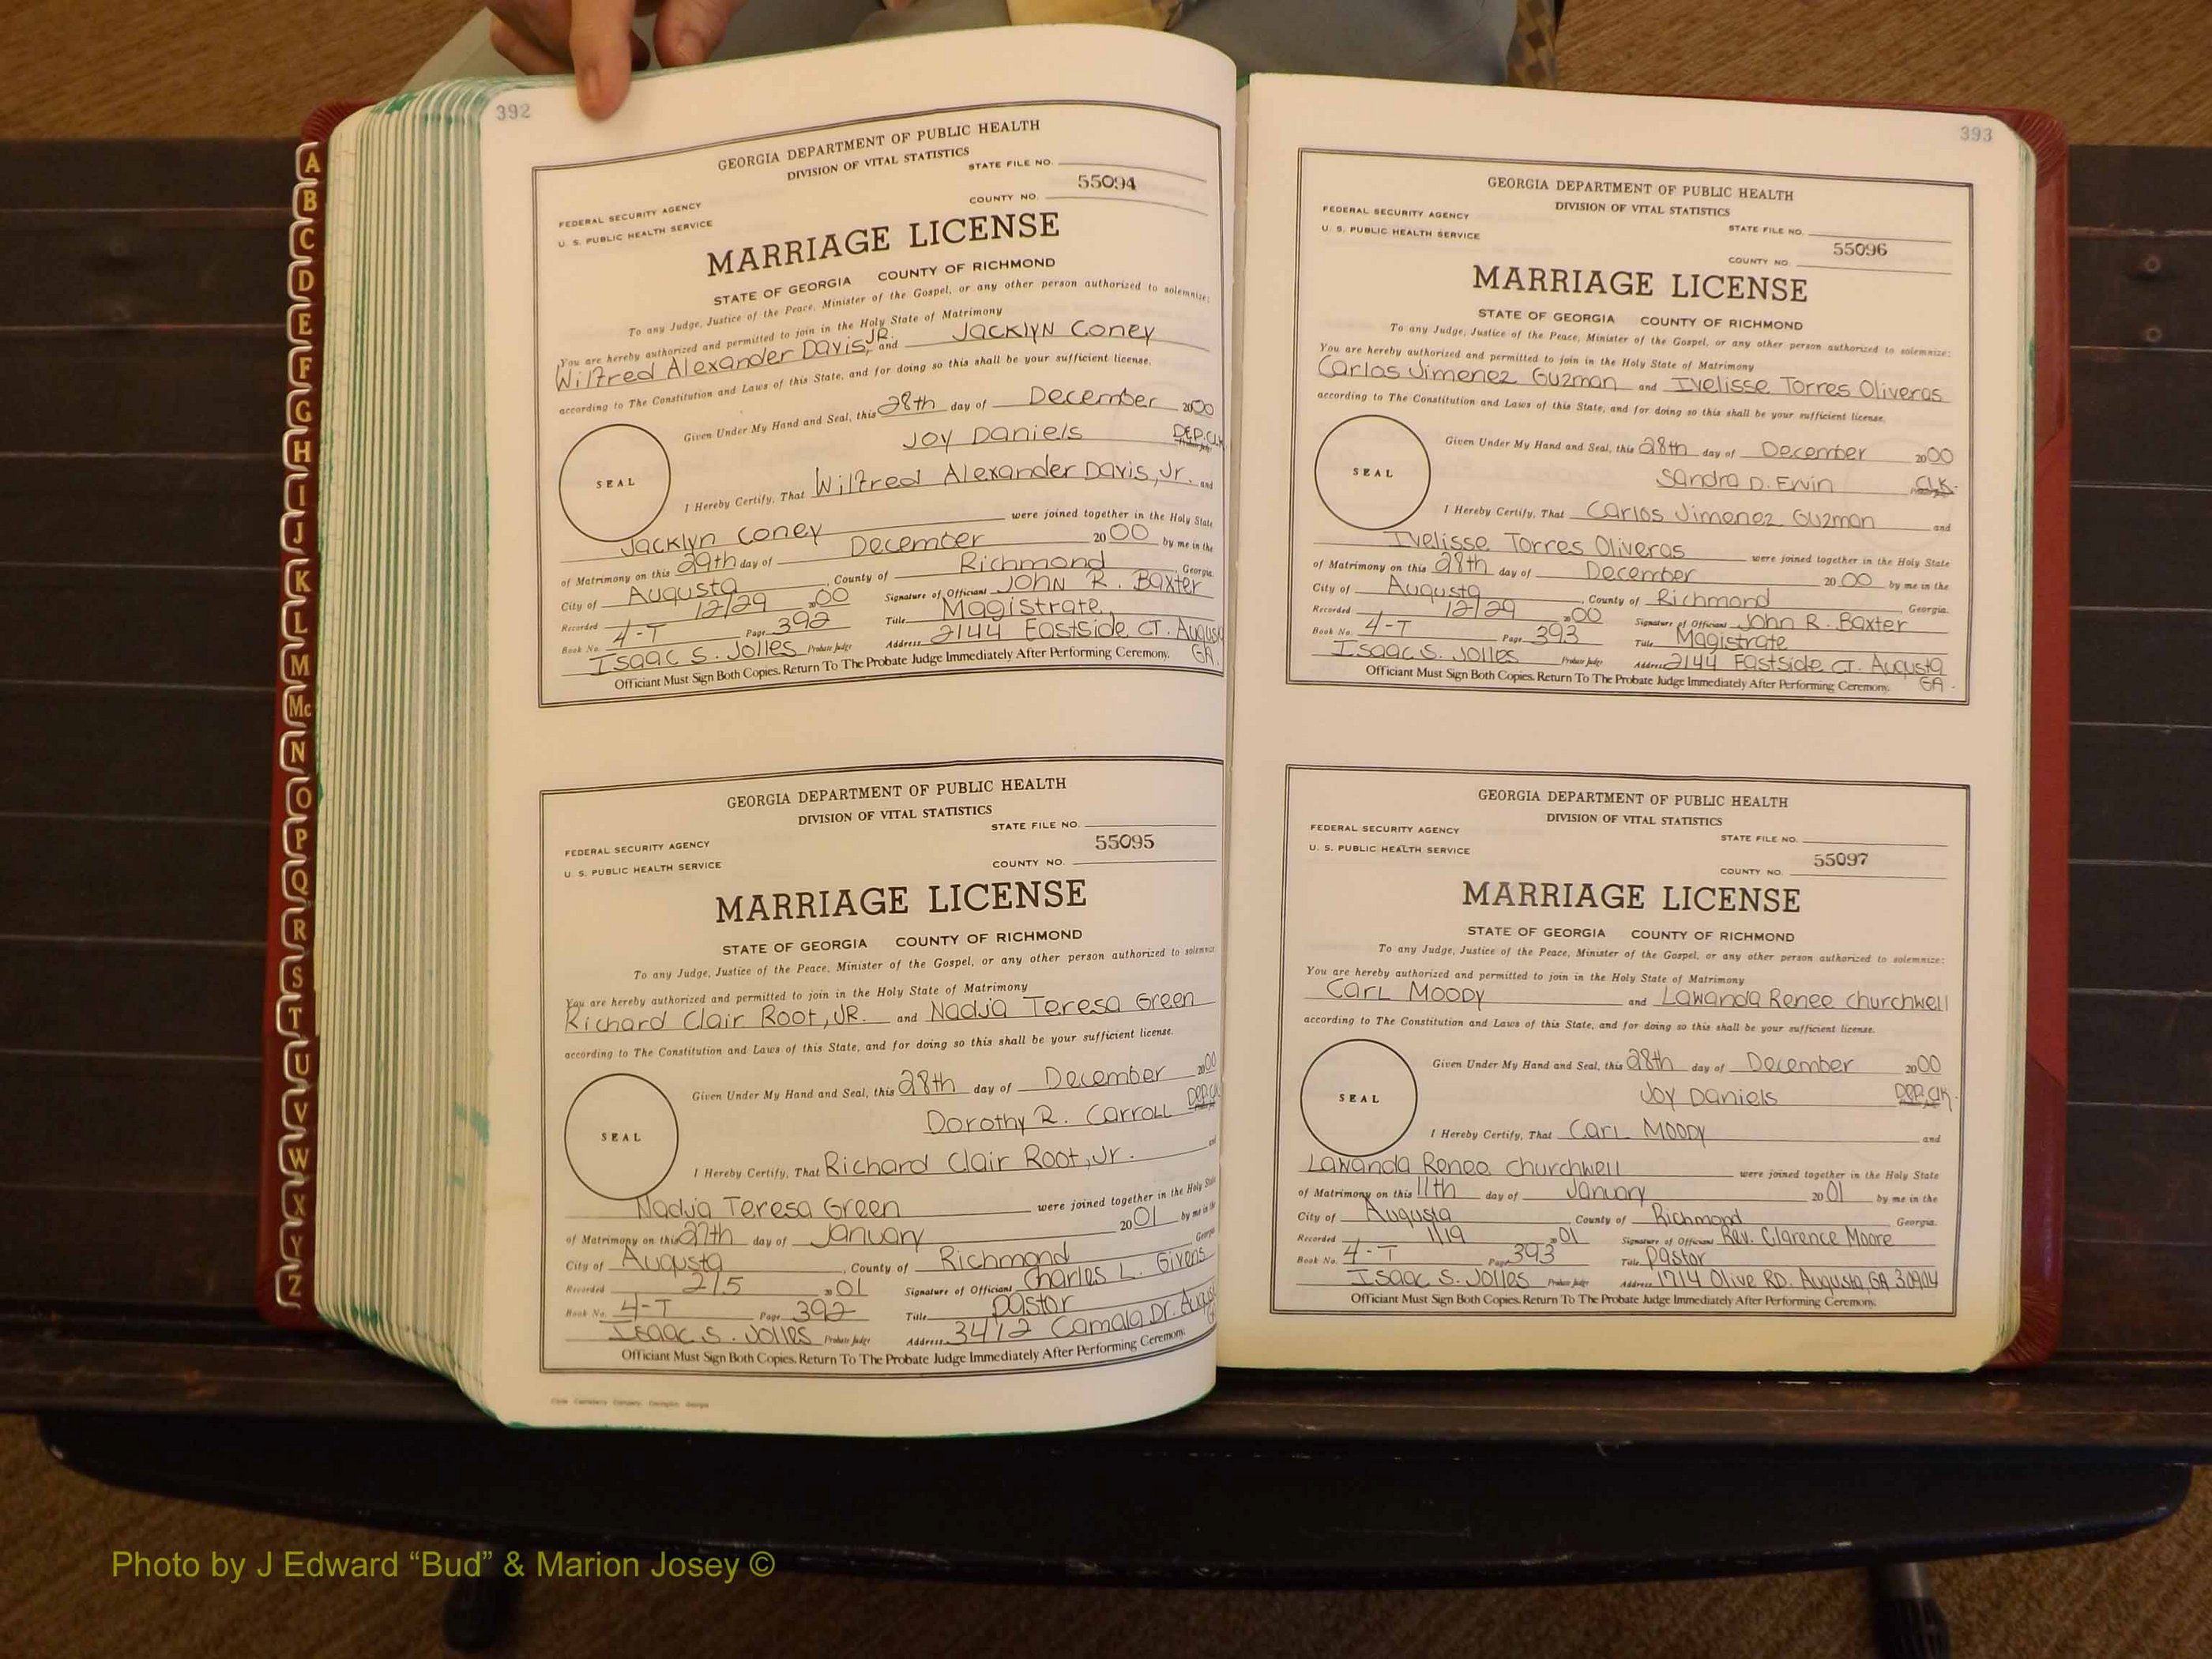 A
B
C
D
E
F
G
H
I
J
K
L
M
Mc
N
O
P
Q
R
S
T
U
V
W
X
Y
Z
392
GEORGIA DEPARTMENT OF PUBLIC HEALTH
DIVISION OF VITAL STATISTICS
STATE FILE NO.
55094
FEDERAL SECURITY AGENCY
COUNTY NO.
U. S. PUBLIC HEALTH SERVICE
MARRIAGE LICENSE
STATE OF GEORGIA COUNTY OF RICHMOND
To any Judge, Justice of the Peace, Minister of the Gospel, or any other person authorized to solemnize:
You are hereby authorized and permitted to join in the Holy State of Matrimony
Wilfred Alexander Davis, JR. and Jacklyn Coney
according to The Constitution and Laws of this State, and for doing so this shall be your sufficient license.
Given Under My Hand and Seal, this 28th day of December 2000
Joy Daniels DEP. CLK
SEAL
I Hereby Certify, That Wilfred Alexander Davis, Jr. and
Jacklyn Coney were joined together in the Holy State
of Matrimony on this 29th day of December 2000 by me in the
City of Augusta, County of Richmond, Georgia.
Recorded 12/29 2000 Signature of Officiant John R. Baxter
Book No. 4-T Page 392 Title Magistrate
Isaac S. Jolles Probate Judge Address 2144 Eastside CT. Augusta
GA.
Officiant Must Sign Both Copies. Return To The Probate Judge Immediately After Performing Ceremony.
GEORGIA DEPARTMENT OF PUBLIC HEALTH
DIVISION OF VITAL STATISTICS
STATE FILE NO.
55095
FEDERAL SECURITY AGENCY
COUNTY NO.
U. S. PUBLIC HEALTH SERVICE
MARRIAGE LICENSE
STATE OF GEORGIA COUNTY OF RICHMOND
To any Judge, Justice of the Peace, Minister of the Gospel, or any other person authorized to solemnize
You are hereby authorized and permitted to join in the Holy State of Matrimony
Richard Clair Root, JR. and Nadja Teresa Green
according to The Constitution and Laws of this State, and for doing so this shall be your sufficient license.
Given Under My Hand and Seal, this 28th day of December 2000
Dorothy R. Carroll DEP. CLK
SEAL
I Hereby Certify, That Richard Clair Root, Jr. and
Nadja Teresa Green were joined together in the Holy State
of Matrimony on this 27th day of January 2001 by me in the
City of Augusta, County of Richmond Georgia
Recorded 2/5 2001 Signature of Officiant Charles L. Givens
Book No. 4-T Page 392 Title pastor
Isaac S. Jolles Probate Judge Address 3412 Camala Dr. August
Officiant Must Sign Both Copies. Return To The Probate Judge Immediately After Performing Ceremony.
393
GEORGIA DEPARTMENT OF PUBLIC HEALTH
DIVISION OF VITAL STATISTICS
FEDERAL SECURITY AGENCY
STATE FILE NO.
U. S. PUBLIC HEALTH SERVICE
55096
COUNTY NO.
MARRIAGE LICENSE
STATE OF GEORGIA COUNTY OF RICHMOND
To any Judge, Justice of the Peace, Minister of the Gospel, or any other person authorized to solemnize:
You are hereby authorized and permitted to join in the Holy State of Matrimony
Carlos Jimenez Guzman and Ivelisse Torres Oliveras
according to The Constitution and Laws of this State, and for doing so this shall be your sufficient license.
Given Under My Hand and Seal, this 28th day of December 2000
Sandra D. Ervin CLK.
SEAL
I Hereby Certify, That Carlos Jimenez Guzman and
Ivelisse Torres Oliveras were joined together in the Holy State
of Matrimony on this 28th day of December 2000 by me in the
City of Augusta, County of Richmond Georgia.
Recorded 12/29 2000 Signature of Officiant John R. Baxter
Book No. 4-T Page 393 Title Magistrate
Isaac S. Jolles Probate Judge Address 2144 Eastside CT. Augusta
GA.
Officiant Must Sign Both Copies. Return To The Probate Judge Immediately After Performing Ceremony.
GEORGIA DEPARTMENT OF PUBLIC HEALTH
DIVISION OF VITAL STATISTICS
FEDERAL SECURITY AGENCY
STATE FILE NO.
U. S. PUBLIC HEALTH SERVICE
55097
COUNTY NO.
MARRIAGE LICENSE
STATE OF GEORGIA COUNTY OF RICHMOND
To any Judge, Justice of the Peace, Minister of the Gospel, or any other person authorized to solemnize:
You are hereby authorized and permitted to join in the Holy State of Matrimony
Carl Moody and Lawanda Renee Churchwell
according to The Constitution and Laws of this State, and for doing so this shall be your sufficient license.
Given Under My Hand and Seal, this 28th day of December 2000
Joy Daniels DEP. CLK.
SEAL
I Hereby Certify, That Carl Moody and
Lawanda Renee Churchwell were joined together in the Holy State
of Matrimony on this 11th day of January 2001 by me in the
City of Augusta, County of Richmond Georgia.
Recorded 1/19 2001 Signature of Officiant Rev. Clarence Moore
Book No. 4-T Page 393 Title Pastor
Isaac S. Jolles Probate Judge Address 1714 Olive RD. Augusta, GA 30904
Officiant Must Sign Both Copies. Return To The Probate Judge Immediately After Performing Ceremony.
Photo by J Edward “Bud” & Marion Josey ©